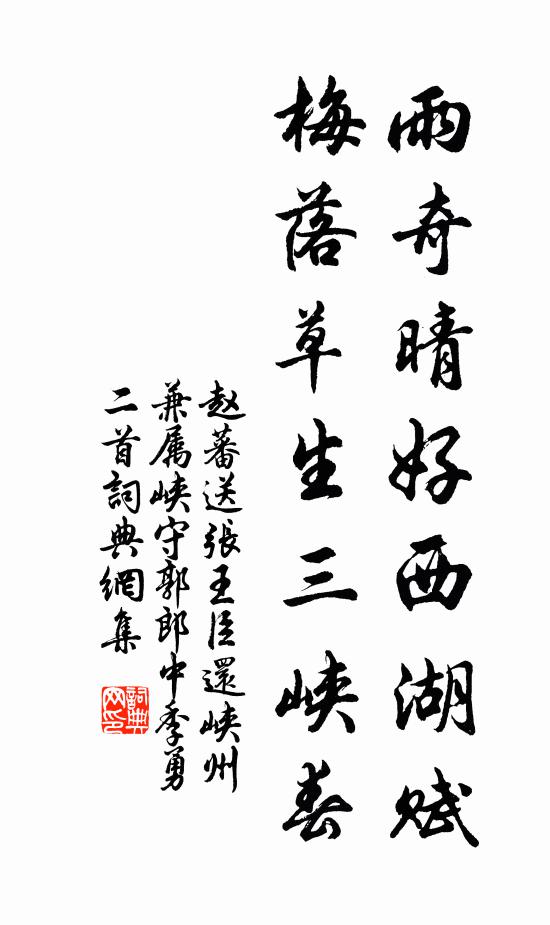 雨奇晴好西湖赋
梅落草生三峡春
赵蕃送張王臣還峡州
兼属峡守郭郎中季勇
二首詞典網集
詞典网印